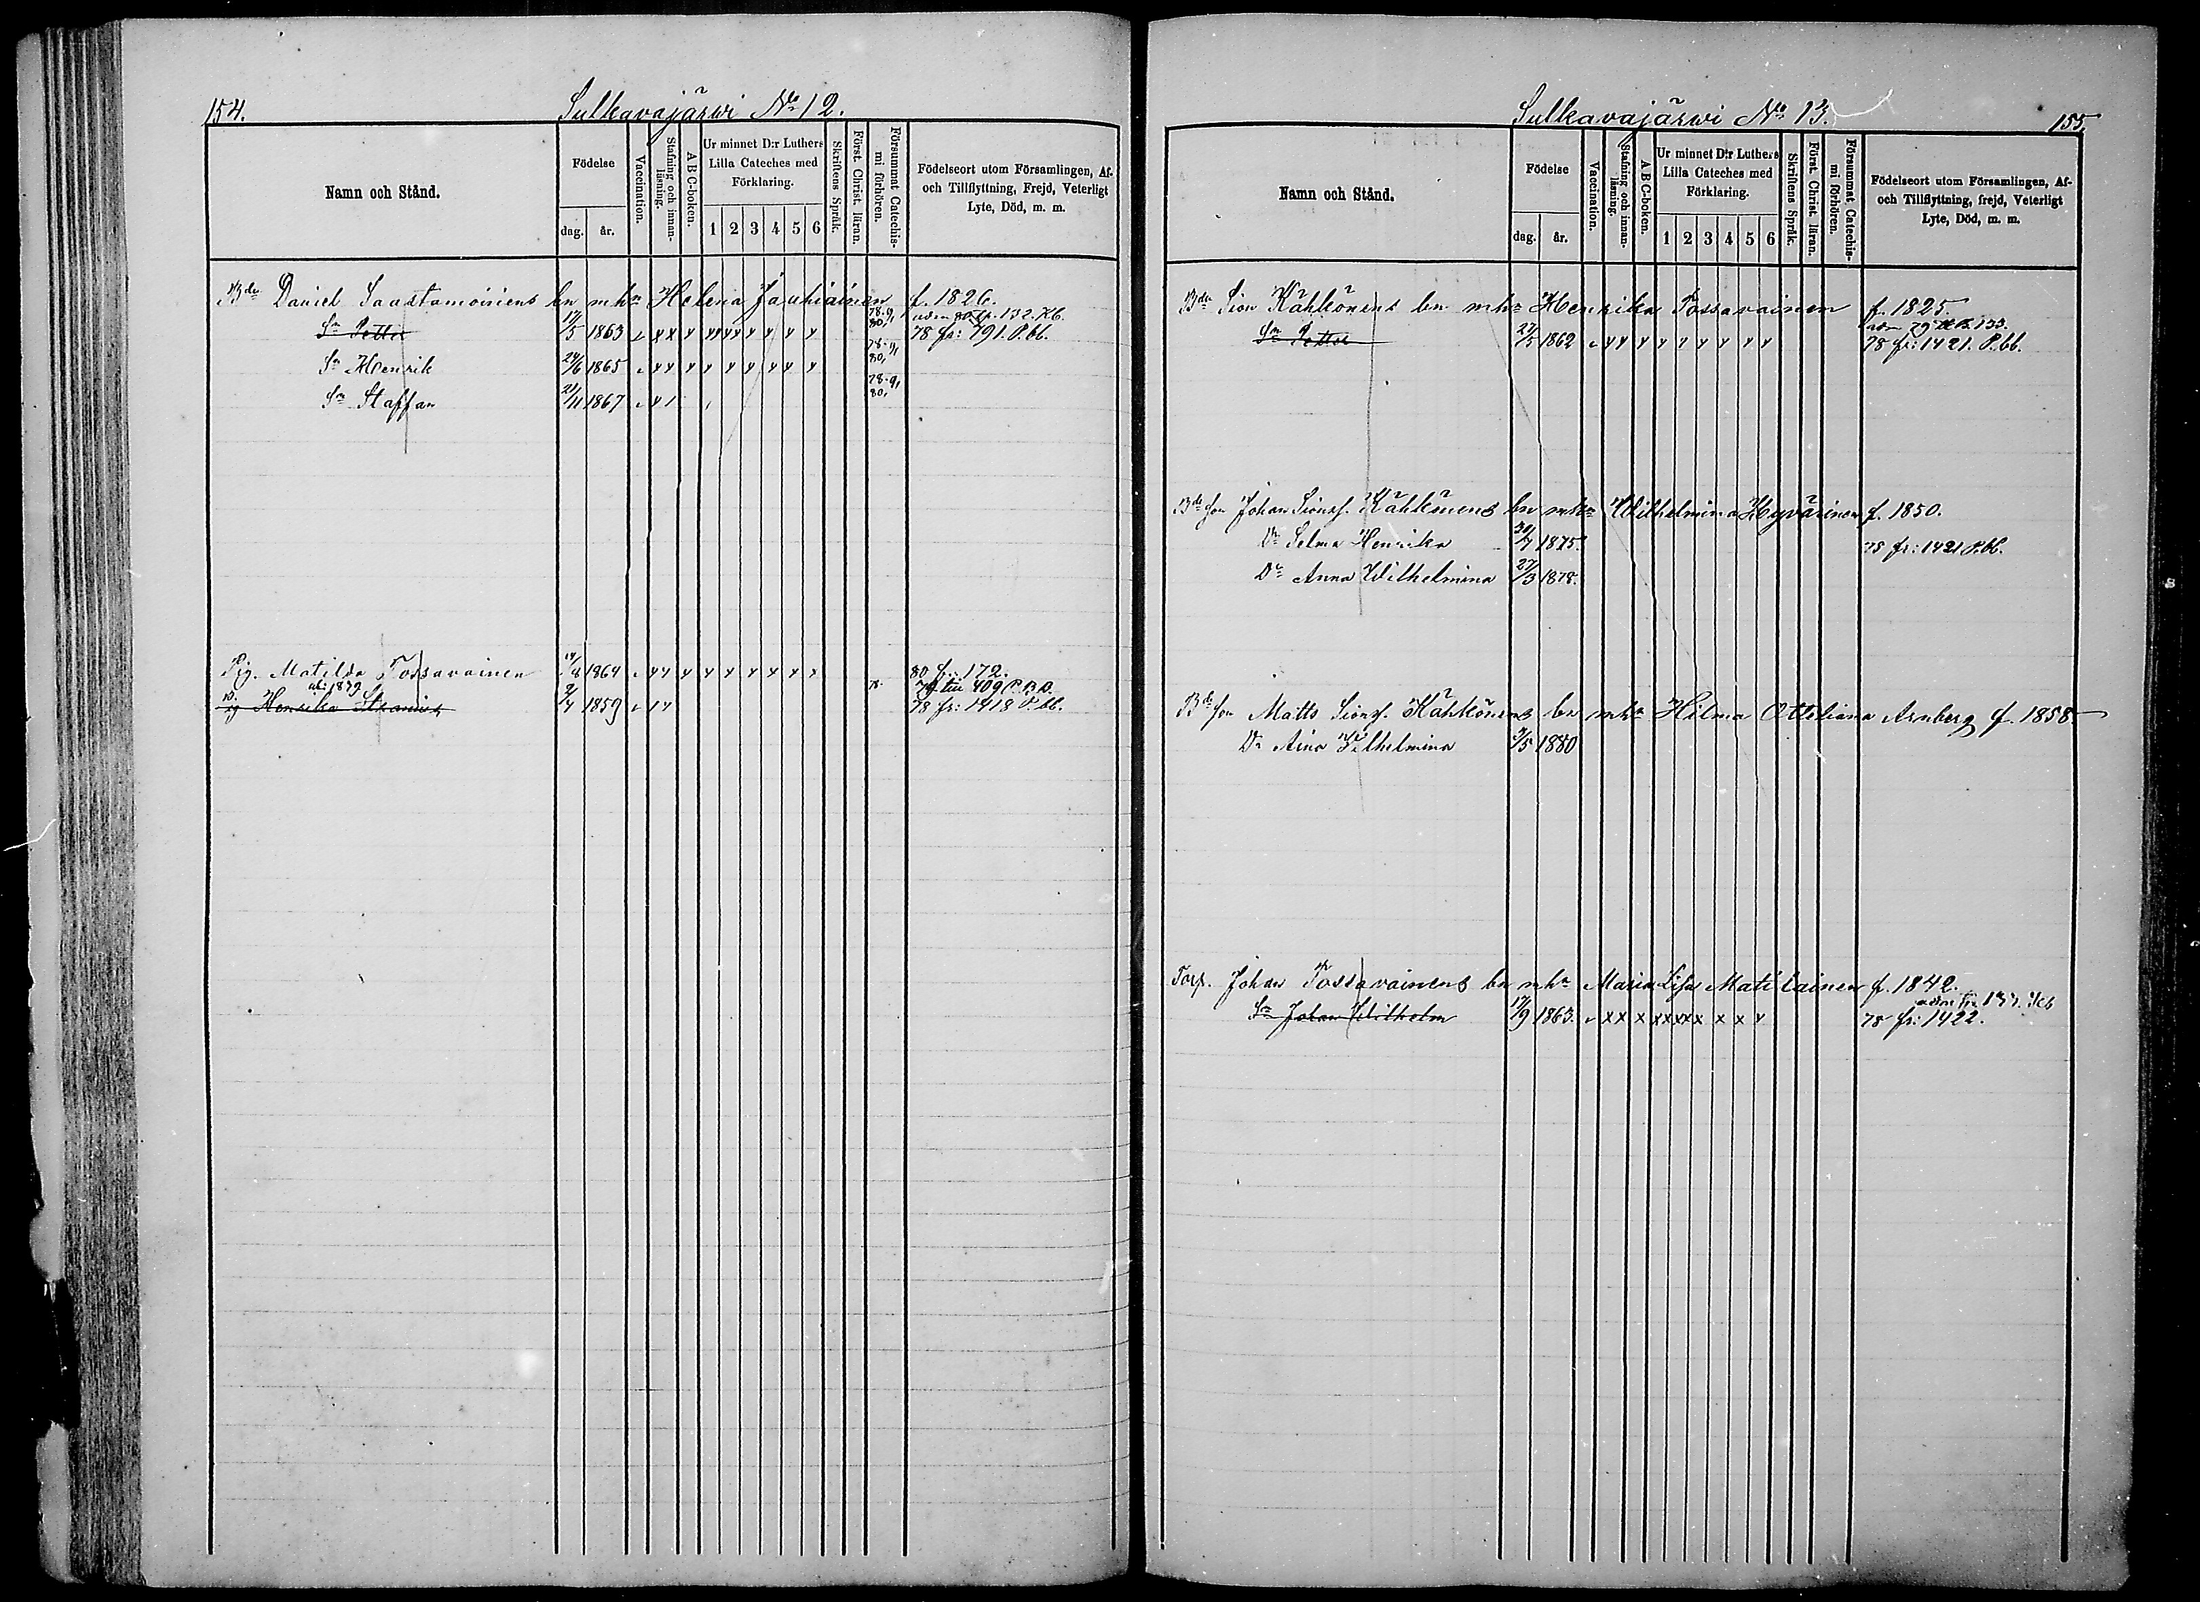 154.
Sulkavajärwi No 12.
Namn och Stånd.
Födelse
dag.
år.
Vaccination.
Stafning och innan-läsning.
A B C-boken.
Ur minnet D:r Luthers Lilla Cateches med Förklaring.
1 2 3 4 5 6
Skriftens Språk.
Först. Christ. läran.
Försummat Catechis-mi förhören.
Födelseort utom Församlingen, Af- och Tillflyttning, Frejd, Veterligt Lyte, Död, m. m.
Bde Daniel Saastamoinens bn mhn Helena Jauhiainen f. 1826.
Sn Petter 17/5 1863 78 fr: 791 P.bb.
Sn Henrik 24/6 1865
Sn Staffan 21/11 1867
Pig. Matilda Tossavainen 14/8 1864 80 fr. 172.
Pig Henrika 2/4 1859 78 fr: 1418 P.bb.
Sulkavajärwi No 13.
155.
Namn och Stånd.
Födelse
dag.
år.
Vaccination.
Stafning och innan-läsning.
A B C-boken.
Ur minnet D:r Luthers Lilla Cateches med Förklaring.
1 2 3 4 5 6
Skriftens Språk.
Först. Christ. läran.
Försummat Catechis-mi förhören.
Födelseort utom Församlingen, Af- och Tillflyttning, frejd, Veterligt Lyte, Död, m. m.
Bde Sion Kähkönens bn mhn Henrika Tossavainen f. 1825.
Sn Petter 27/5 1862 78 fr: 1421. P.bb.
Bde son Johan Sionss. Kähkönens bn mhn Wilhelmina Hyvärinen f. 1850.
Dr Selma Henrika 30/7 1875. 78 fr: 1421 P.bb.
Dr Anna Wilhelmina 27/3 1878.
Bde son Matts Sionss. Kähkönens bn mhn Hilma Otteliana Arnberg f. 1858
Dr Aina Wilhelmina 9/5 1880
Torp. Johan Tossavainens bn mhn Maria Lisa Matilainen f. 1842.
Sn Johan Wilhelm 17/9 1863. 78 fr: 1422.